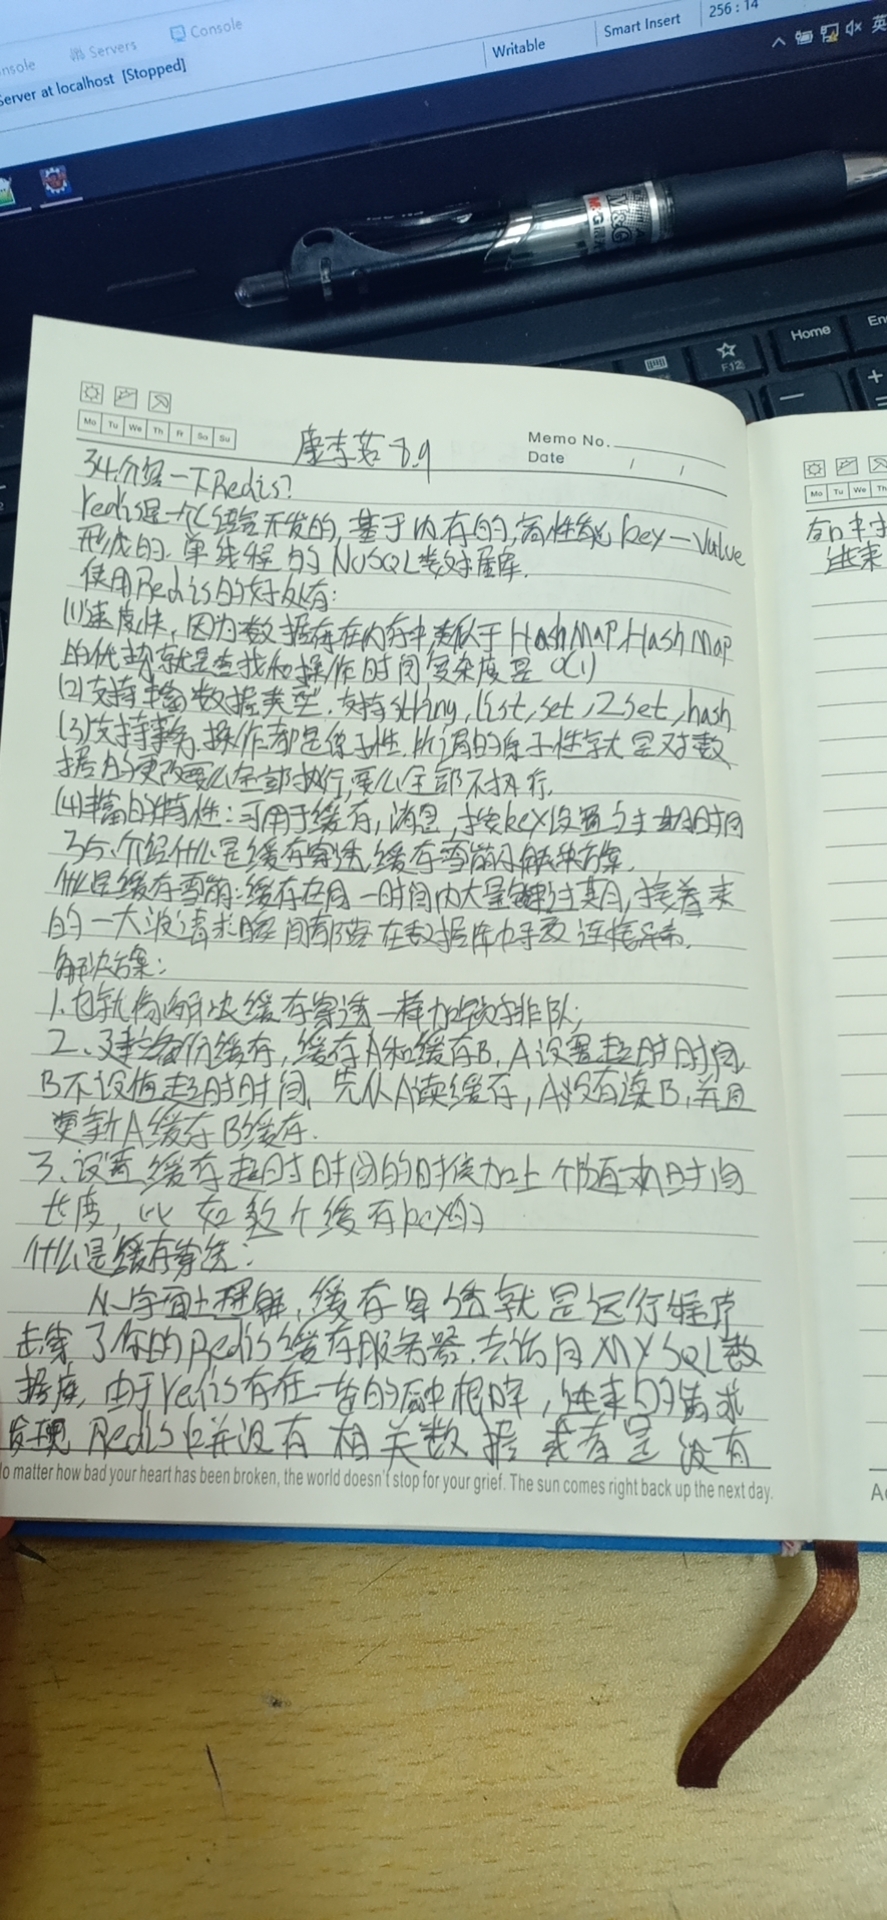 Console
Servers
Console
Server at localhost [Stopped]
Writable
Smart Insert
256 : 14
英
M&G
Home
F12
Mo Tu We Th Fr Sa Su
8.9
Memo No.
Date / /
34.介绍一下Redis?
redis是一个C语言开发的,基于内存的,高性能 key-value
形式的.单线程的NoSQL数据库.
使用Redis的好处有:
(1)速度快,因为数据存在内存中,类似于HashMap,HashMap
的优势就是查找和操作时间复杂度是O(1)
(2)支持丰富数据类型.支持string,list,set,Zset,hash
(3)支持事务,操作都是原子性.所谓的原子性就是对数
据的更改要么全部执行,要么全部不执行.
(4)丰富的特性:可用于缓存,消息,按key设置过期时间
35.介绍什么是缓存穿透,缓存雪崩及解决方案.
什么是缓存雪崩:缓存在同一时间内大量键过期,接着来
的一大波请求瞬间都落在数据库中导致连接异常.
解决方案:
1.也就像解决缓存穿透一样加锁排队;
2、建立备份缓存,缓存A和缓存B,A设置超时时间,
B不设值超时时间,先从A读缓存,A没有读B,并且
更新A缓存B缓存.
3、设置缓存超时时间的时候加上个随机时间
长度,比如这个缓存key的
什么是缓存穿透:
从字面上理解,缓存穿透就是运行程序
击穿了你的Redis缓存服务器,去访问MYSQL数
据库,由于redis存在一定的 ,进来的请求
发现Redis中并没有相关数据或者是没有
No matter how bad your heart has been broken, the world doesn't stop for your grief. The sun comes right back up the next day.
Mo Tu We Th
进来